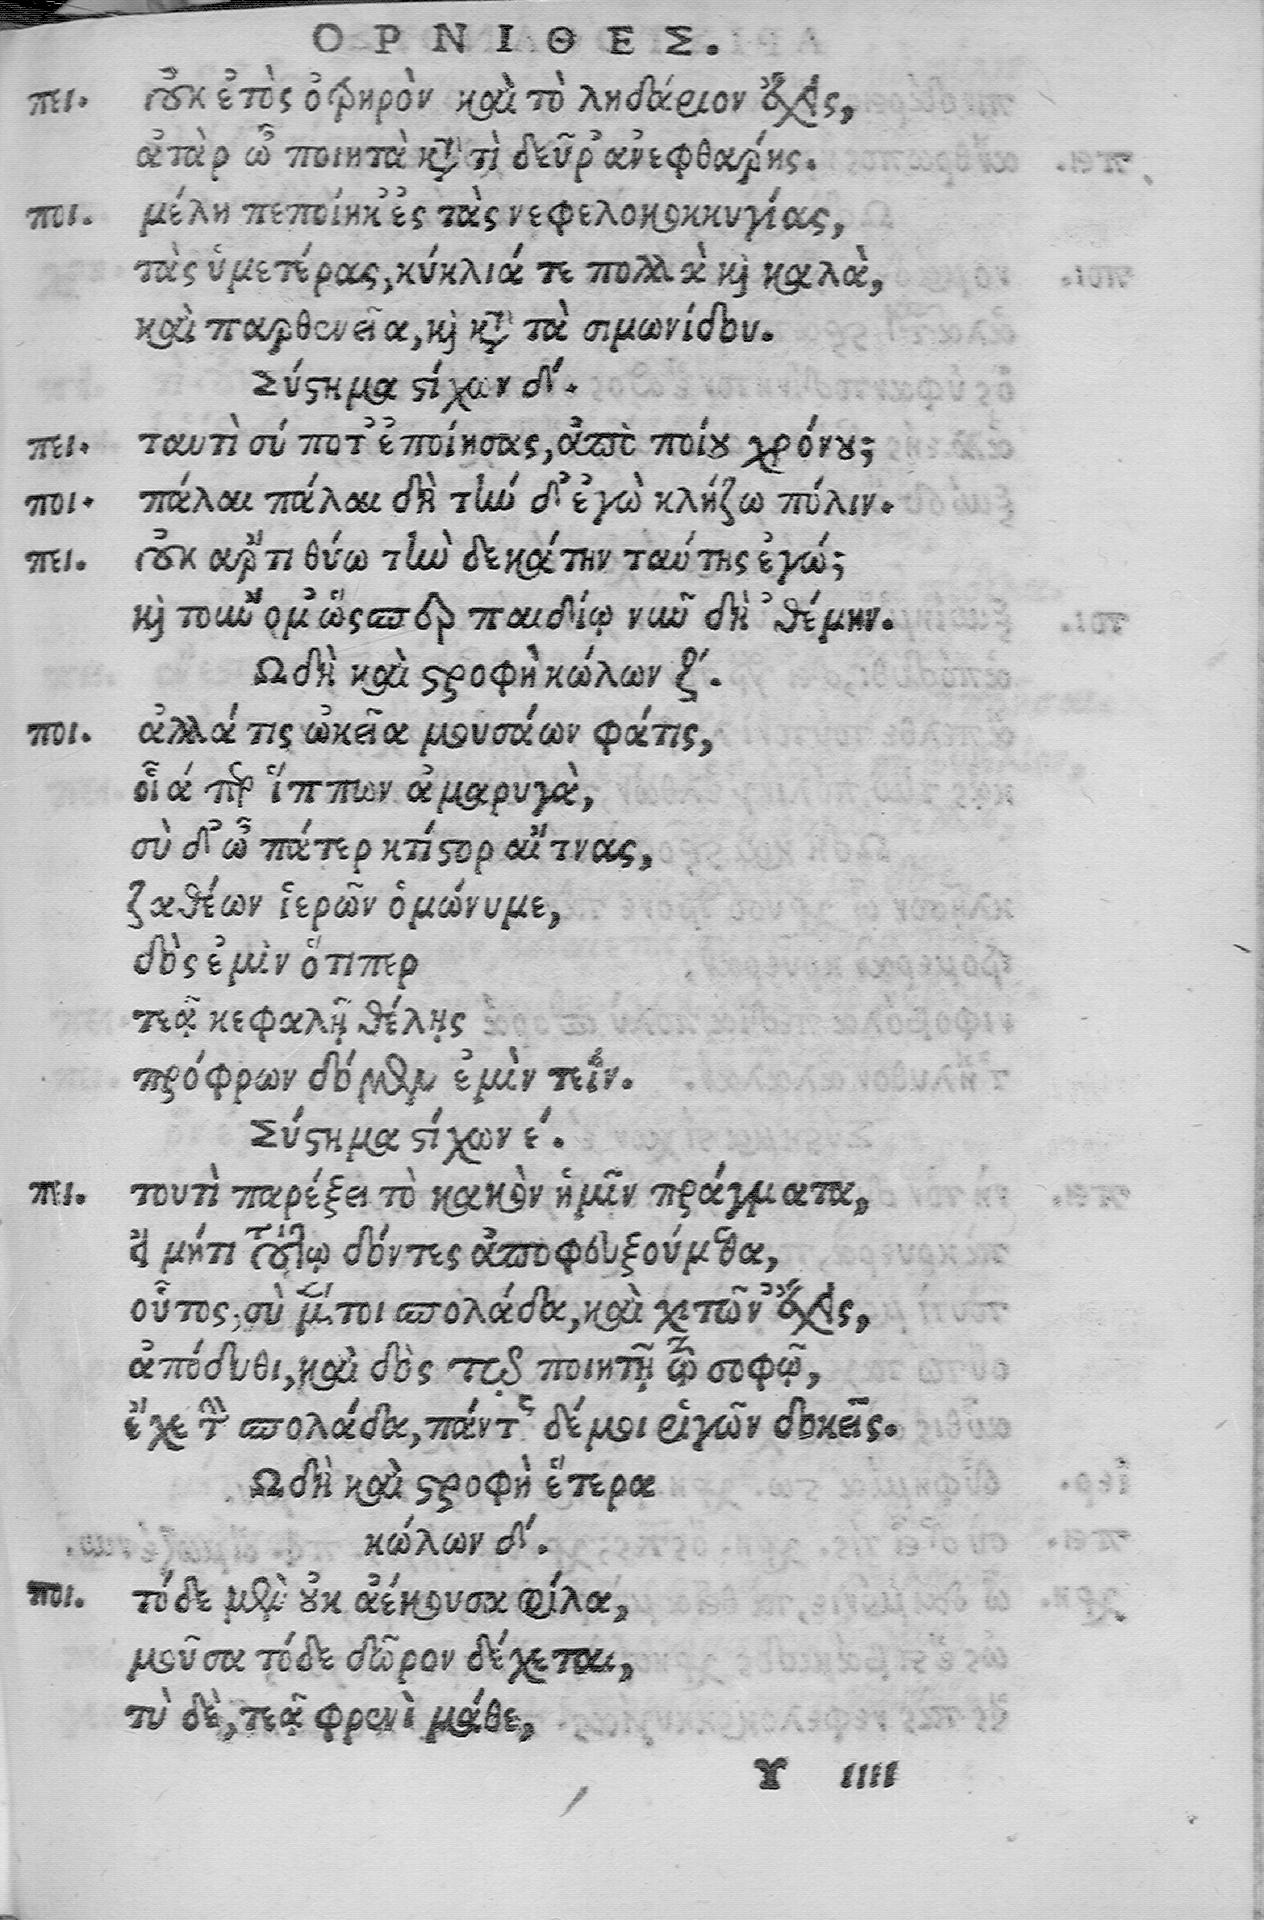 ΟΡΝΙΘΕΣ.
πει. οὐκ ἐτὸς ὀτρηρὸν καὶ τὸ ληδάριον ἔχεις,
ἀτὰρ ὦ ποιητὰ κατὰ τὶ δεῦρ' ἀνεφθαρης.
ποι. μέλη πεποίηκ' ἐς τὰς νεφελοκοκκυγίας,
τὰς ὑμετέρας, κύκλιά τε πολλὰ καὶ καλὰ,
καὶ παρθενεῖα, καὶ κατὰ τὰ σιμωνίδου.
Σύστημα στίχων δ'.
πει. ταυτὶ σύ ποτ' ἐποίησας, ἀπὸ ποίου χρόνου;
ποι. πάλαι πάλαι δὴ τήν δ' ἐγὼ κλήζω πόλιν.
πει. οὐκ ἄρτι θύω τὴν δεκάτην ταύτης ἐγώ;
καὶ τοὔνομ' ὥσπερ παιδίῳ νῦν δὴ 'θέμην.
Ωδὴ καὶ στροφὴ κώλων ζ'.
ποι. ἀλλά τις ὠκεῖα μουσάων φάτις,
οἷά περ ἵππων ἀμαρυγὰ,
σὺ δ' ὦ πάτερ κτίστορ αἴτνας,
ζαθέων ἱερῶν ὁμώνυμε,
δὸς ἐμὶν ὅτιπερ
τεᾷ κεφαλῇ θέλῃς
πρόφρων δόμεν ἐμὶν τεΐν.
Σύστημα στίχων ε'.
πει. τουτὶ παρέξει τὸ κακὸν ἡμῖν πράγματα,
εἰ μήτι τούτῳ δόντες ἀποφευξούμεθα,
οὗτος, σὺ μέντοι σπολάδα, καὶ χιτῶν' ἔχεις,
ἀπόδυθι, καὶ δὸς τῷ ποιητῇ τῷ σοφῷ,
ἔχε τὴν σπολάδα, πάντως δέ μοι ῥιγῶν δοκεῖς.
Ωδὴ καὶ στροφὴ ἕτερα
κώλων δ'.
ποι. τόδε μὲν οὐκ ἀέκουσα φίλα,
μοῦσα τόδε δῶρον δέχεται,
τὺ δὲ, τεᾷ φρενὶ μάθε,
Υ iiii